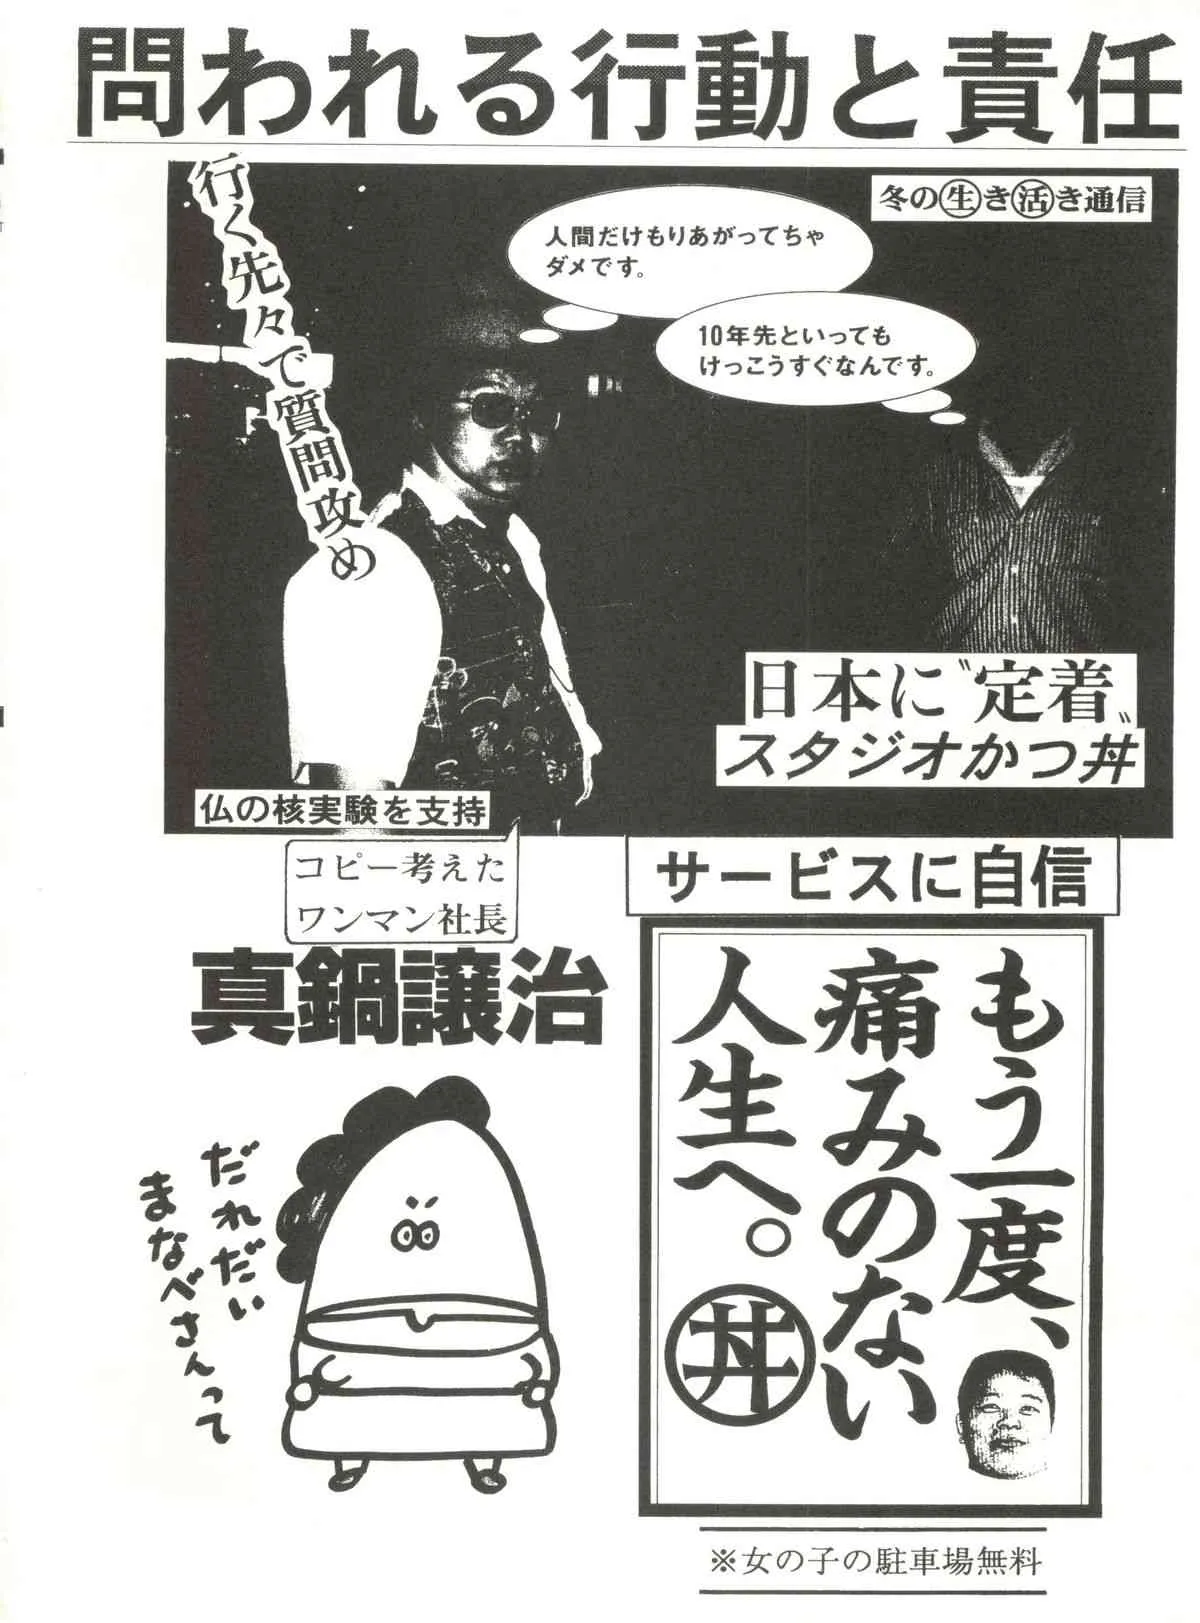 問われる行動と責任
冬の㊤き㊦き通信
行く先々で質問攻め
人間だけもりあがってちゃ
ダメです。
10年先といっても
けっこうすぐなんです。
日本に〝定着〟
スタジオかつ丼
仏の核実験を支持
コピー考えた
ワンマン社長
真鍋譲治
サービスに自信
もう一度、
痛みのない
人生へ。
丼
だれだい
まなべさんって
※女の子の駐車場無料